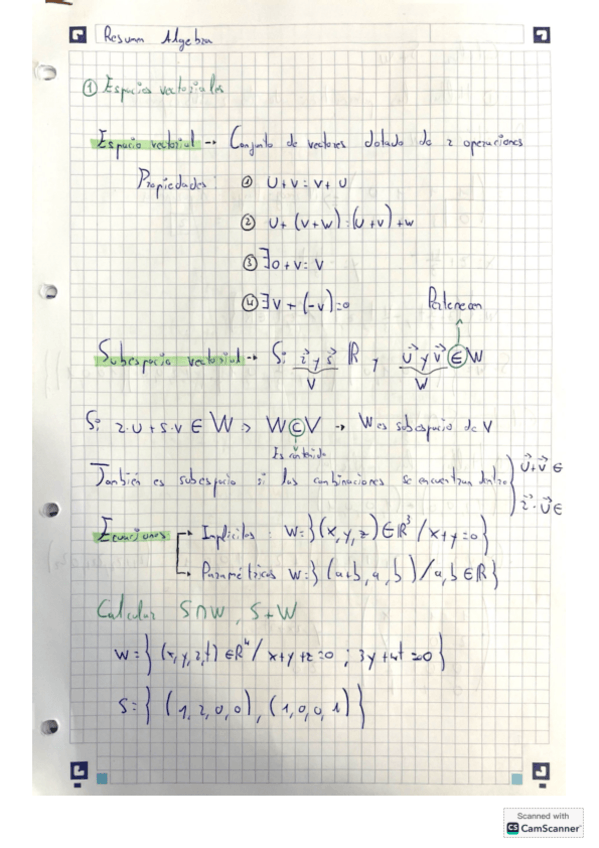 Resumen Algebra
① Espacios vectoriales
Espacio vectorial → Conjunto de vectores dotado de 2 operaciones
Propiedades: ① U+V=V+U
② U+(V+W)=(U+V)+W
③ ∃0+V=V
④ ∃V+(-V)=0
Pertenecen
Subespacio vectorial → Si y ℝ, U⃗ y V⃗ ∈ W
V W
Si 2·U+S·V ∈ W > W⊂V → W es subespacio de V
Es contenido
También es subespacio si las combinaciones se encuentran dentro } U⃗+V⃗ ∈
2⃗·U⃗ ∈
Ecuaciones → Implícitas: W={(x,y,z)∈ℝ³/x+y=0}
→ Paramétricas W={(a+b,a,b)/a,b∈ℝ}
Calcular S∩W, S+W
W={(x,y,z,t)∈ℝ⁴/x+y+z=0; 3y+4t=0}
S={(1,2,0,0),(1,0,0,1)}
Scanned with
CS CamScanner